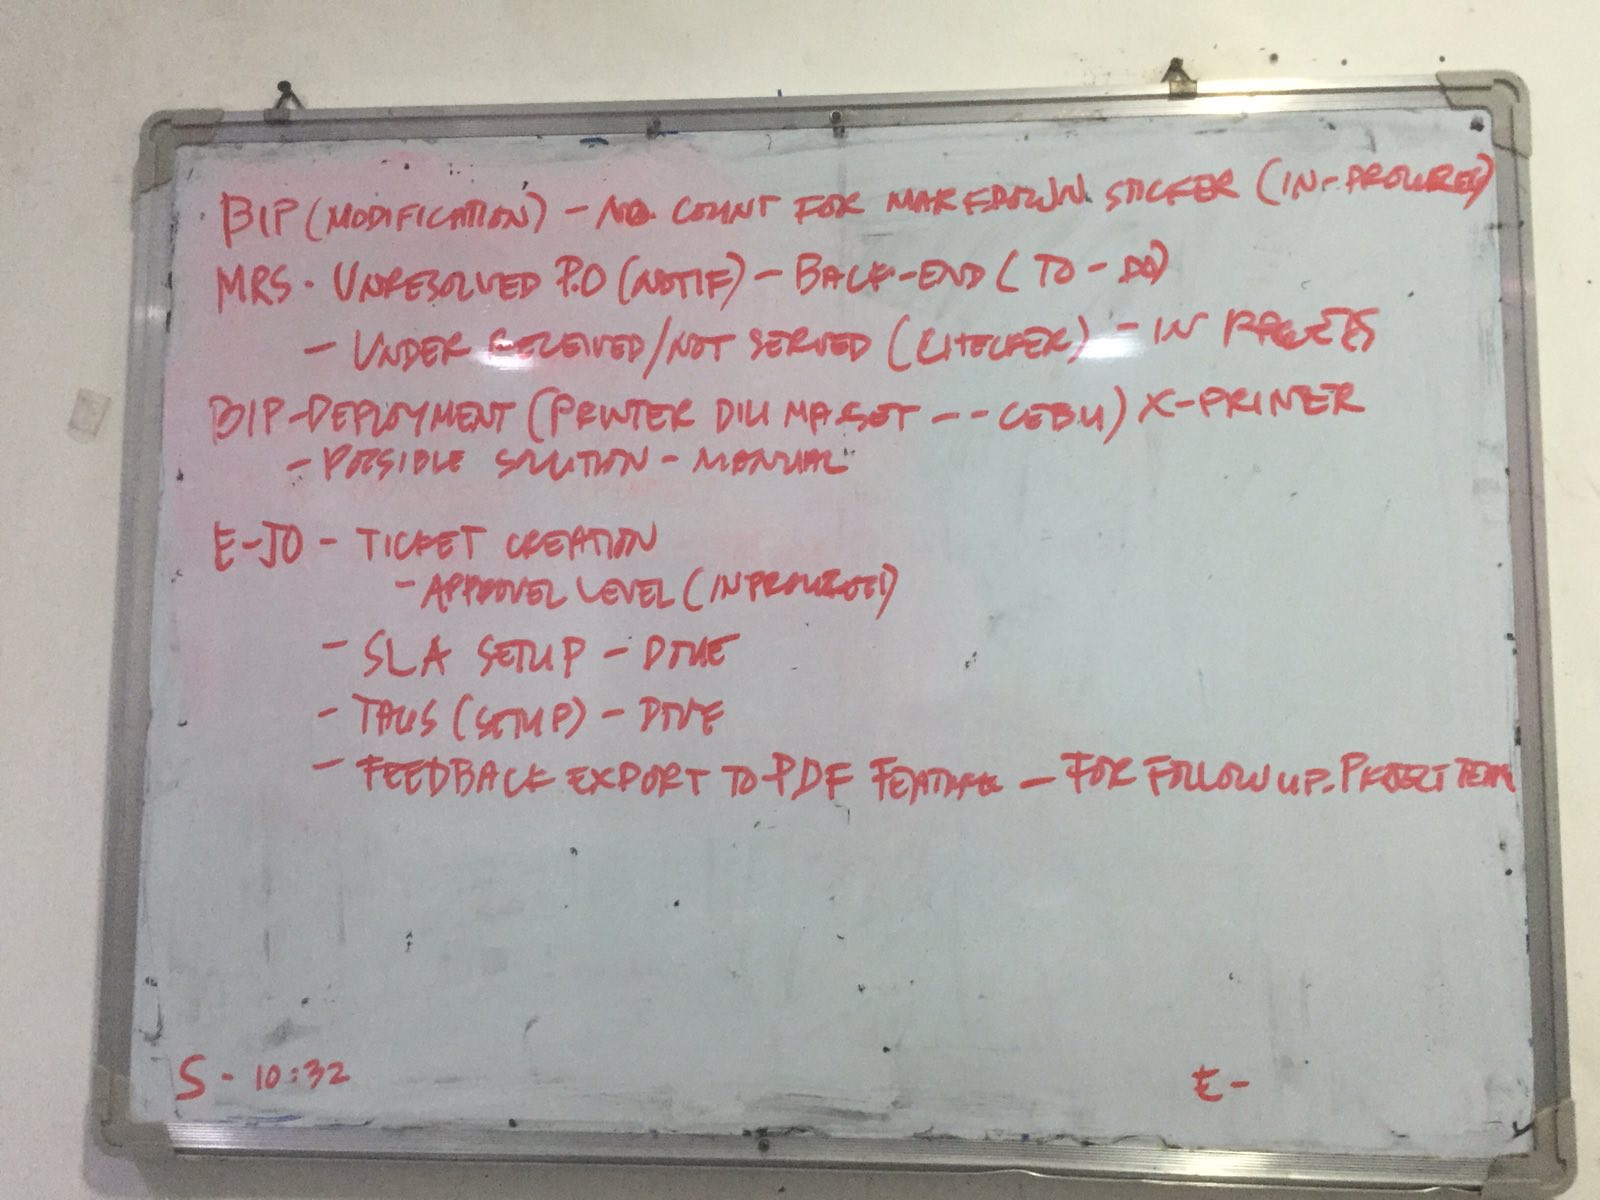 BIP (MODIFICATION) - NO. COUNT FOR MARKDOWN STICKER (IN-PROGRESS)
MRS - UNRESOLVED P.O (NOTIF) - BACK-END (TO-DO)
- UNDER RECEIVED/NOT SERVED (CHECKER) - IN PROCESS
BIP-DEPLOYMENT (PRINTER DILI MA SET -- CEBU) X-PRINTER
- POSSIBLE SOLUTION - MANUAL
E-JO - TICKET CREATION
- APPROVEL LEVEL (IN PROGRESS)
- SLA SETUP - DONE
- TAGS (SETUP) - DONE
- FEEDBACK EXPORT TO PDF FEATURE - FOR FOLLOW UP - PROJECT TEAM
S - 10:32
E -